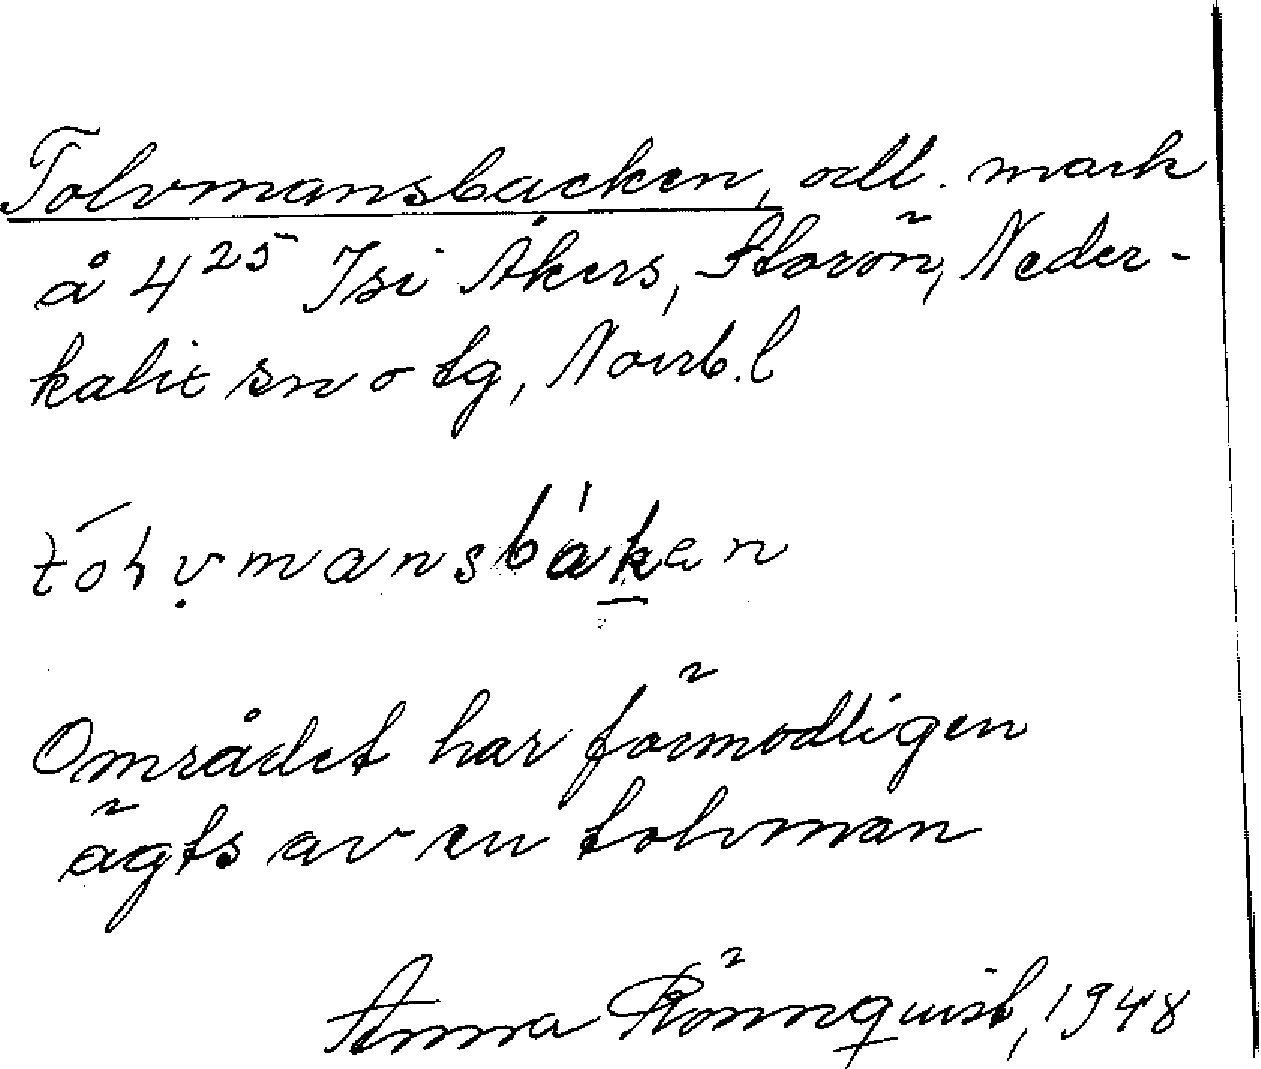 Tolvmansbacken, odl. mark
å 4²⁵ Isi Åkers, Storön, Neder-
kalix sn o tg, Norrb. l
tólvmansbàken
Området har förmodligen
ägts av en tolvman
Anna Rönnquist, 1948